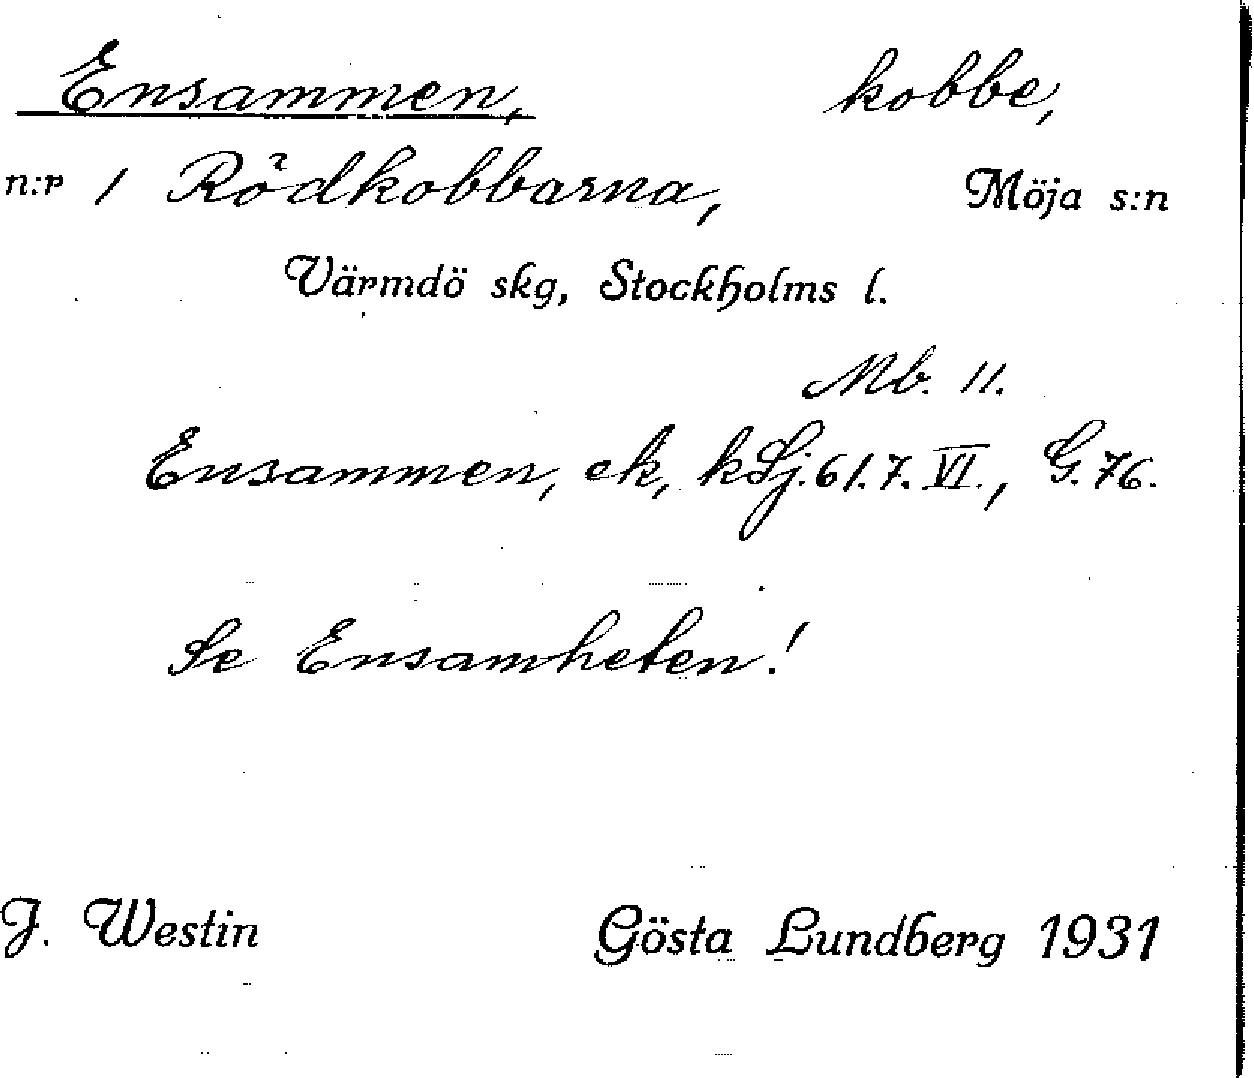 Ensammen, kobbe,
n:r 1 Rödkobbarna, Möja s:n
Värmdö skg, Stockholms l.
Mb. 11.
Ensammen, ek, kSj. 61.7.VI., G. 76.
Se Ensamheten!
J. Westin Gösta Lundberg 1931